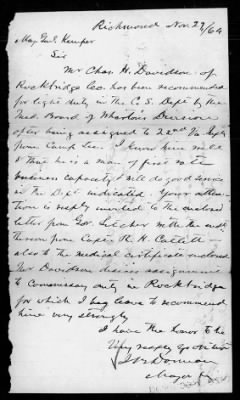 Richmond Nov 29/64
Maj Genl Kemper
Sir
Mr Chas. H. Davidson of
Rockbridge Co. has been recommended
for light duty in the C. S. Dept by the
Med. Board of Wharton's Division
after being assigned to 22nd Va. Regt
from Camp Lee. I know him well
& that he is a man of first rate
business capacity & will do good service
in the Dept indicated. Your atten-
tion is resply invited to the enclosed
letter from Gov. Letcher with the endt
thereon from Capt. R. H. Catlett -
also to the medical certificate enclosed
Mr Davidson desires assignment
to Commissary duty in Rockbridge
for which I beg leave to recommend
him very strongly
I have the honor to be
Very resply yr obt svt
J B Dorman
Major